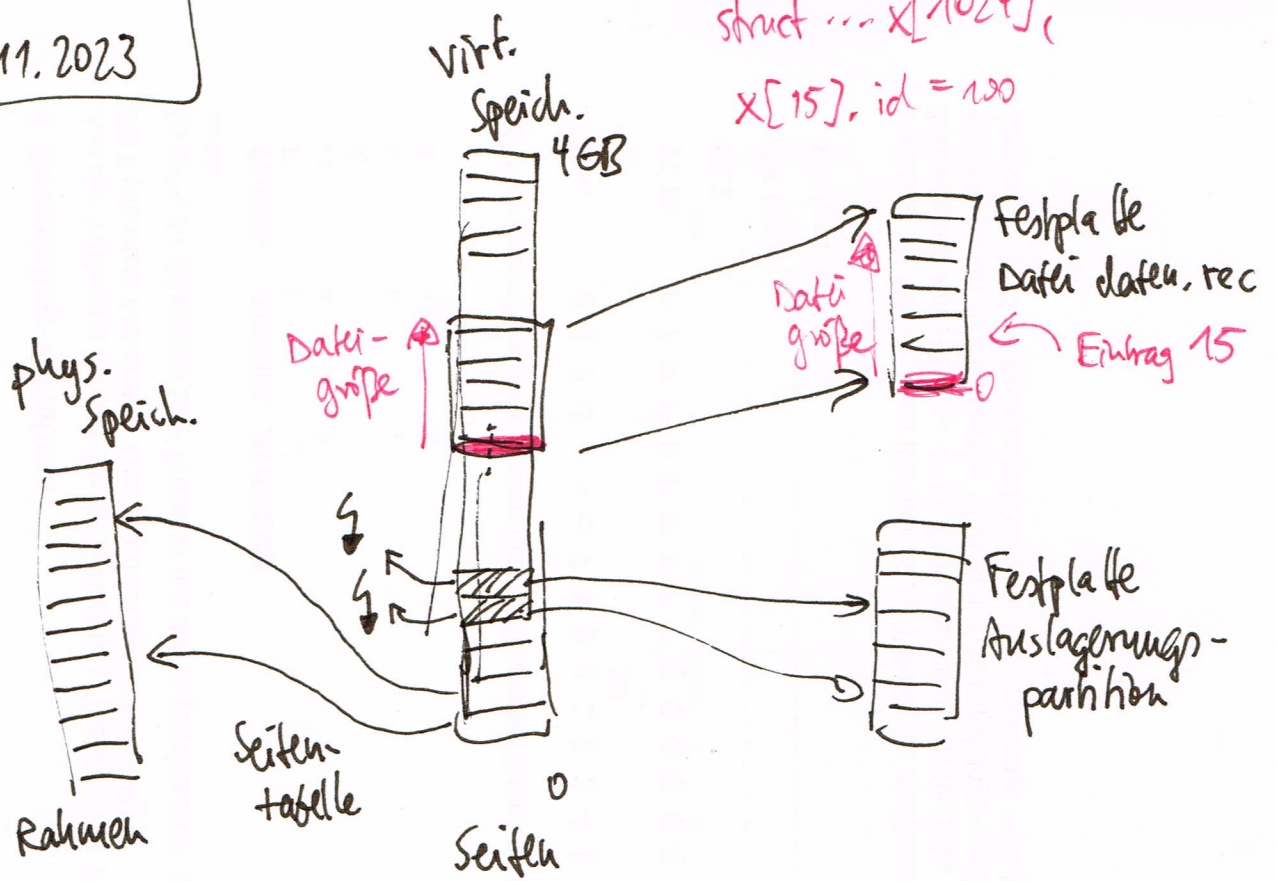 11.2023
struct ... x[1024];
x[15].id = 100
virt.
Speich.
4GB
Festplatte
Datei daten.rec
Datei-
größe
Datei
größe
Eintrag 15
0
phys.
Speich.
Festplatte
Auslagerungs-
partition
Seiten-
tabelle
0
Rahmen
Seiten